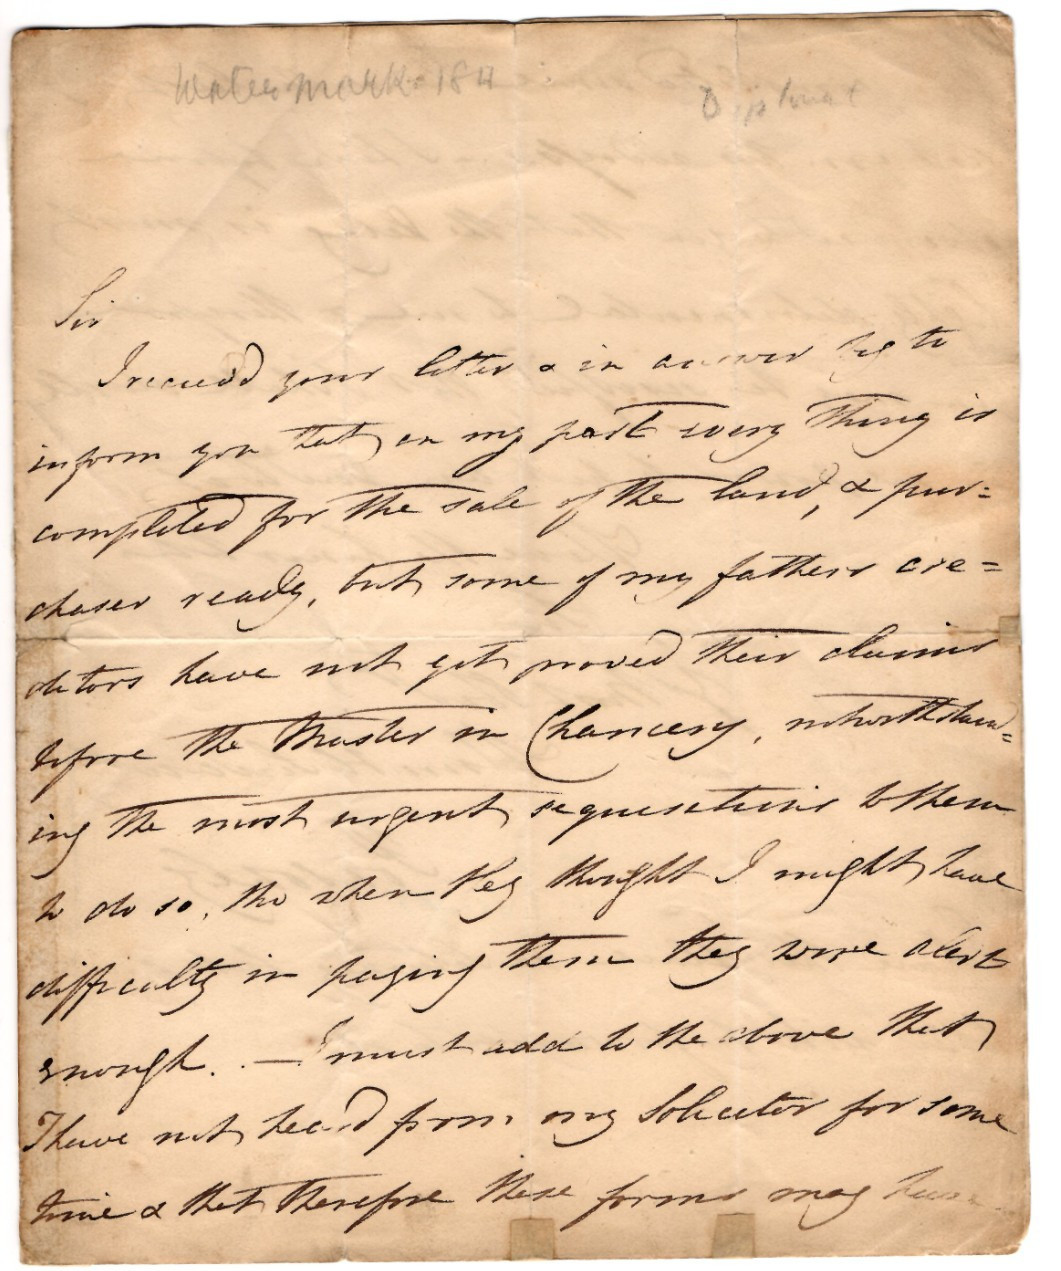 Watermark 18
Diplomat
Sir
I receiv'd your letter & in answer beg to
inform you that on my part every thing is
completed for the sale of the land, & pur=
chaser ready, but some of my fathers cre=
ditors have not yet proved their claims
before the Master in Chancery, notwithstand=
ing the most urgent requisitions to them
to do so, tho when they thought I might have
difficulty in paying them they were alert
enough. — I must add to the above that
I have not heard from my Solicitor for some
time & that therefore these forms may have